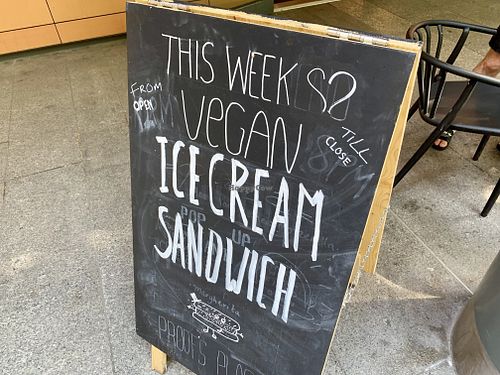 THIS WEEK
VEGAN
FROM
OPEN
TILL
CLOSE
ICE CREAM
POP UP
SANDWICH